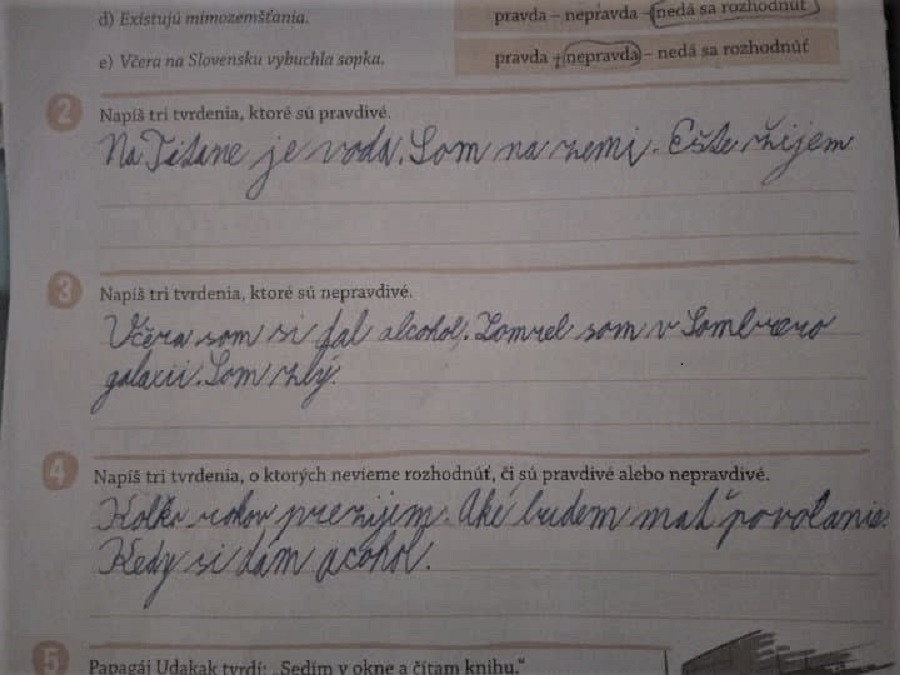 d) Existujú mimozemšťania. pravda – nepravda – nedá sa rozhodnúť
e) Včera na Slovensku vybuchla sopka. pravda – nepravda – nedá sa rozhodnúť
2 Napíš tri tvrdenia, ktoré sú pravdivé.
Na Titane je voda. Som na zemi. Ešte žijem
3 Napíš tri tvrdenia, ktoré sú nepravdivé.
Včera som si dal alcohol. Zomrel som v Sombrero
galaxii. Som zlý.
4 Napíš tri tvrdenia, o ktorých nevieme rozhodnúť, či sú pravdivé alebo nepravdivé.
Kolko rokov prežijem. Aké budem mať povolanie.
Kedy si dám acohol.
5 Papagáj Udakak tvrdí: „Sedím v okne a čítam knihu.“